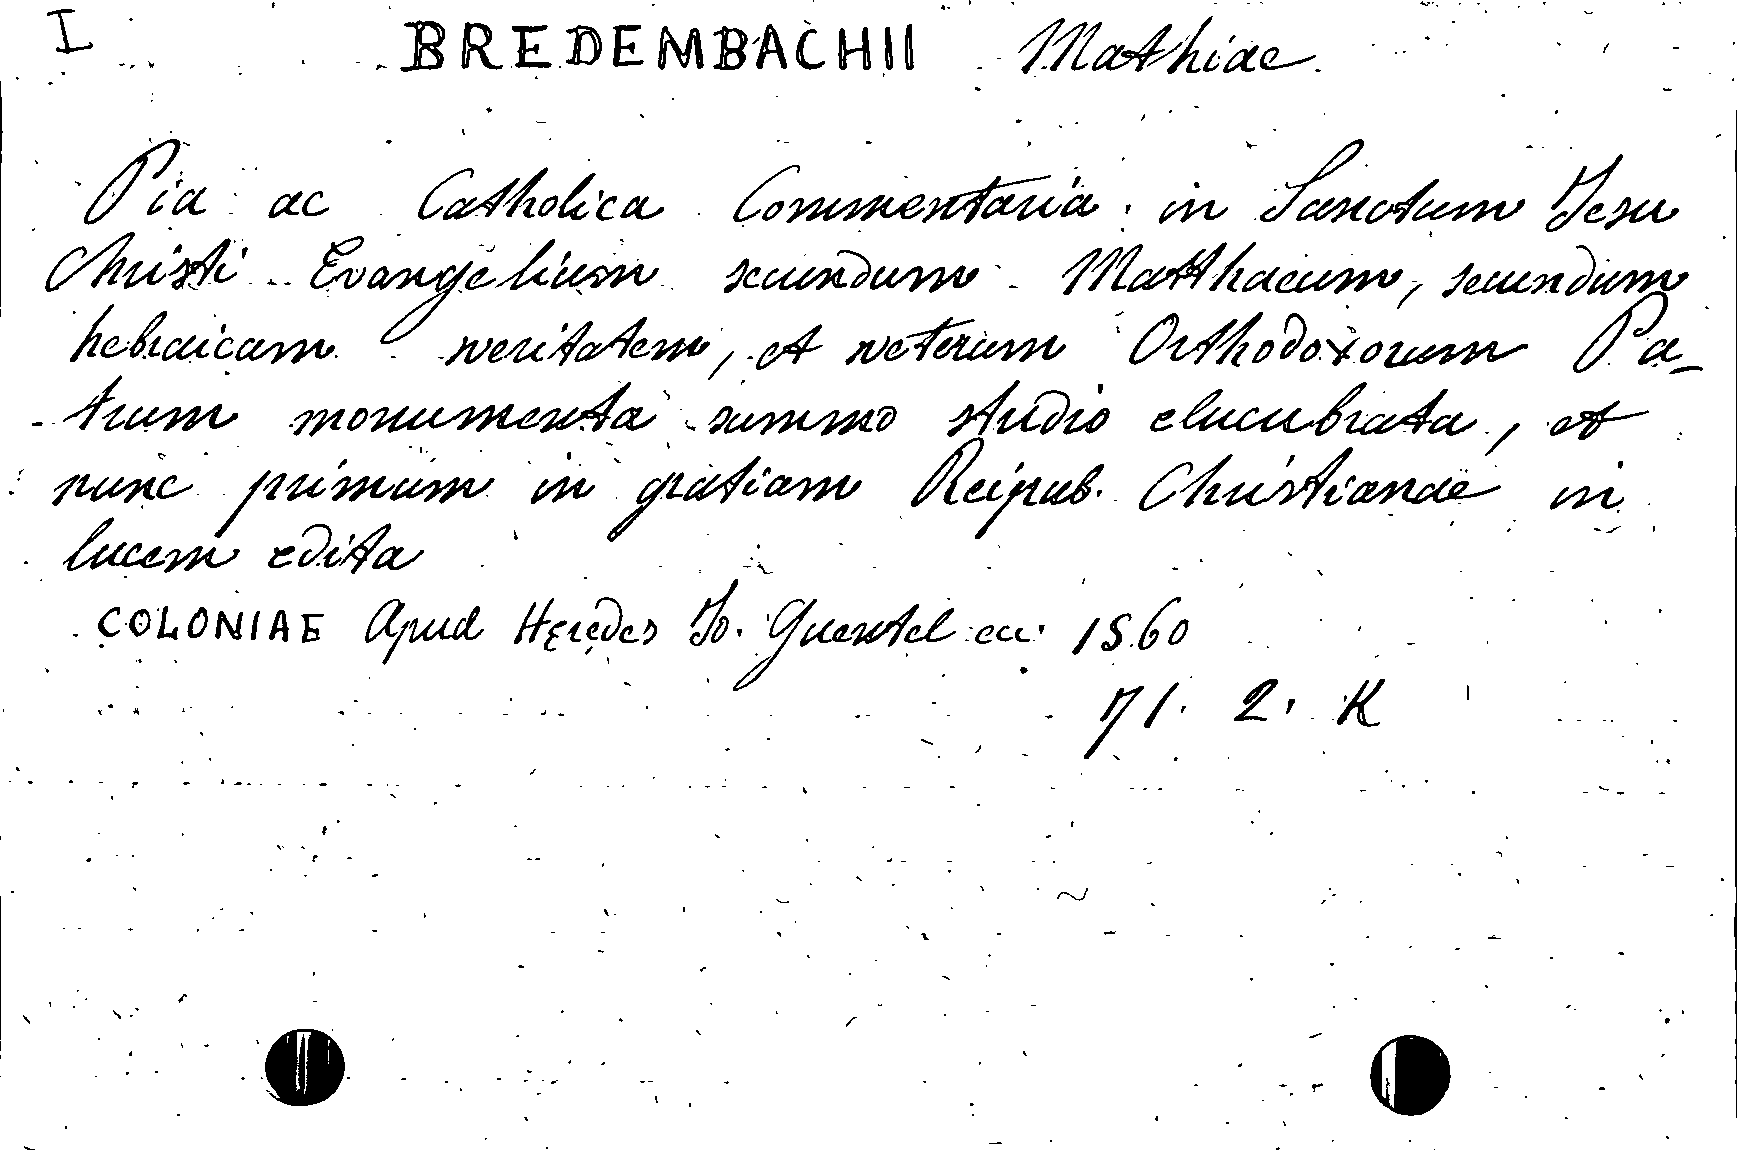 I BREDEMBACHII Mathiae
Pia ac Catholica Commentaria in Sanctum Jesu
Christi Evangelium secundum Matthaeum, secundum
hebraicam veritatem, et veterum Orthodoxorum Pa-
trum monumenta summo studio elucubrata, et
nunc primum in gratiam Reipub. Christianae in
lucem edita
COLONIAE Apud Heredes Jo. Quentel ecc. 1560
71. 2. K